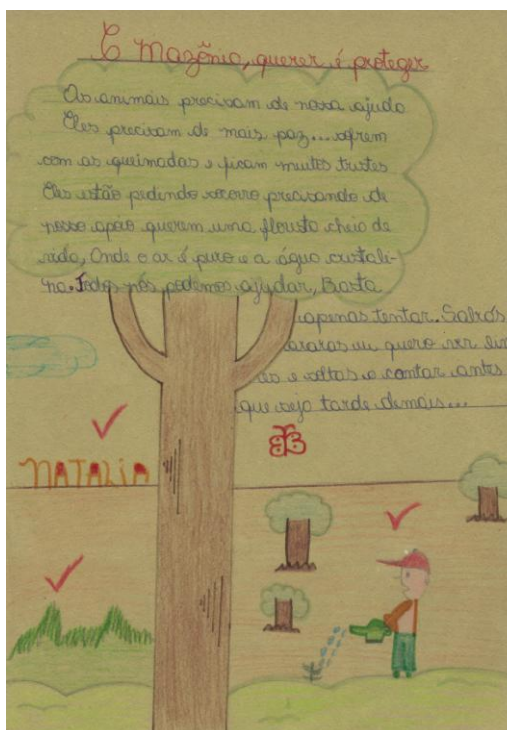 Mazônio, querer é proteger
Os animais precisam de nossa ajuda
Eles precisam de mais paz... sofrem
com as queimadas e ficam muitos tristes
Eles estão pedindo socorro precisando de
nosso apoio querem uma floresta cheio de
vida, Onde o ar é puro e a água cristali-
na. Todos nós podemos ajudar, Basta
apenas tentar.
araras eu quero ver lin
es e soltas a cantar antes
que seja tarde demais...
NATALIA